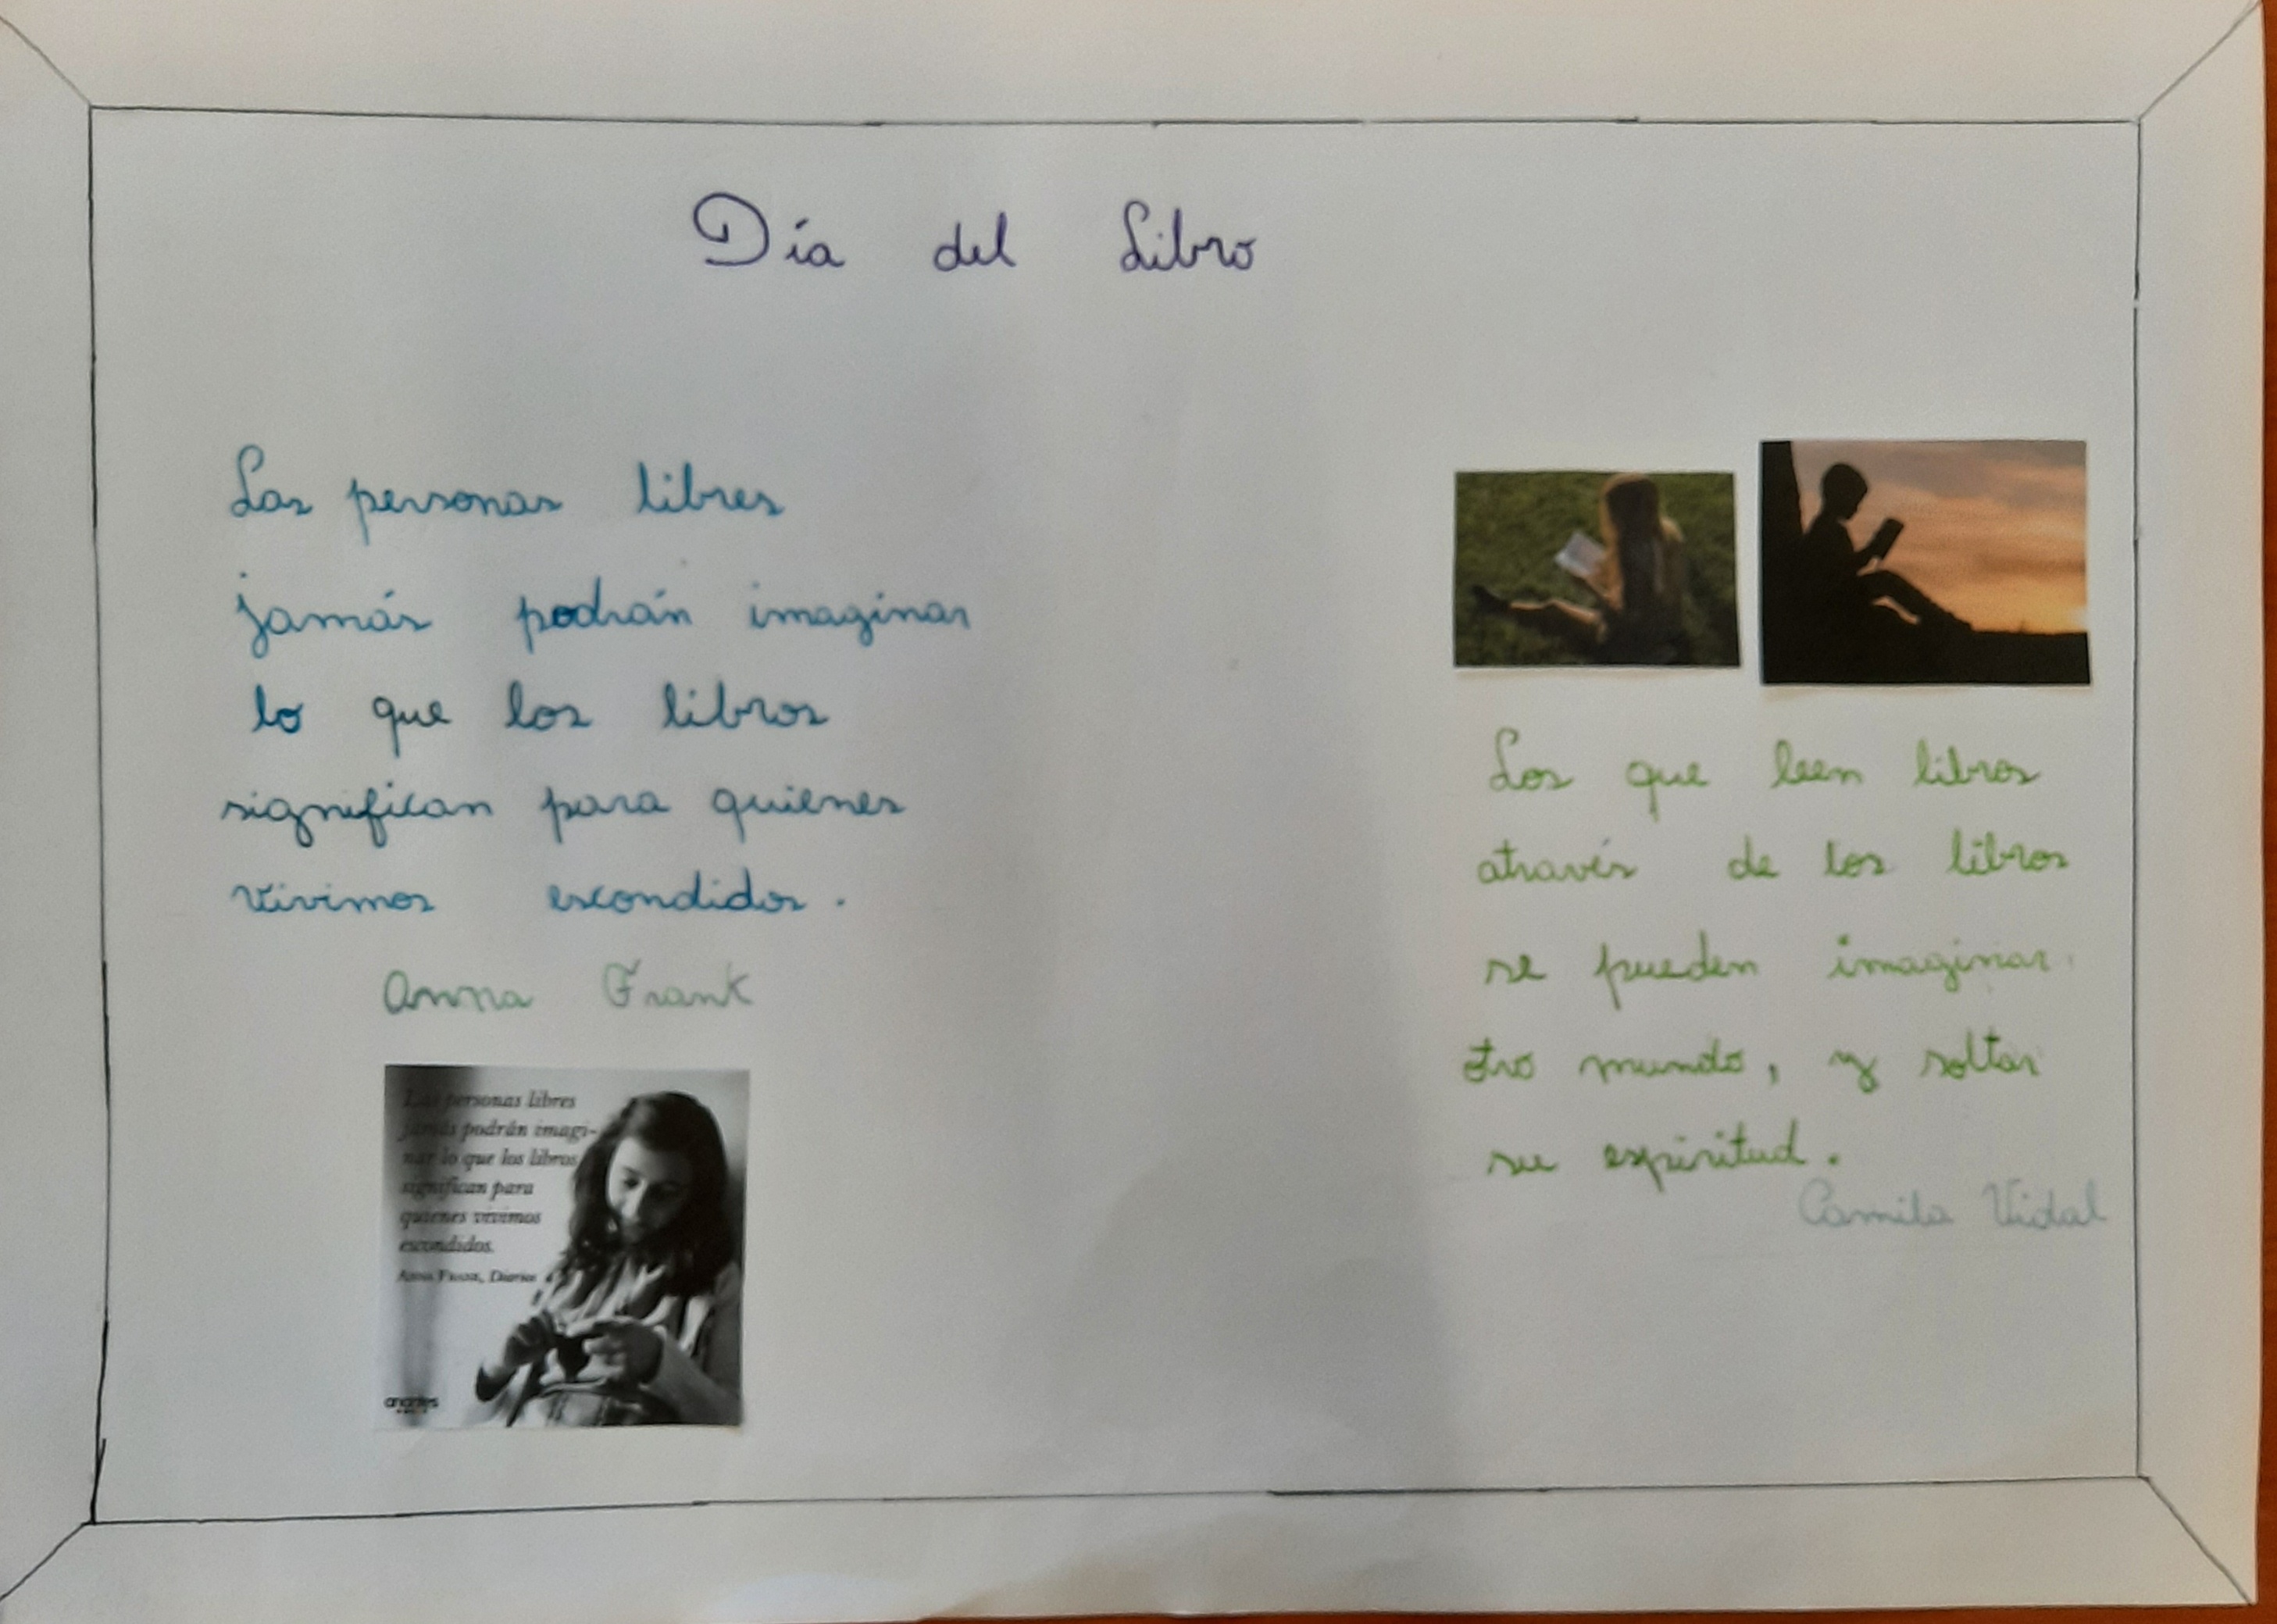 Día del Libro
Las personas libres
jamás podrán imaginar
lo que los libros
significan para quienes
vivimos escondidos.
Anna Frank
Las personas libres
jamás podrán imagi-
nar lo que los libros
significan para
quienes vivimos
escondidos.
Anna Frank, Diarios
Los que leen libros
através de los libros
se pueden imaginar
otro mundo, y soltar
su espiritud.
Camila Vidal